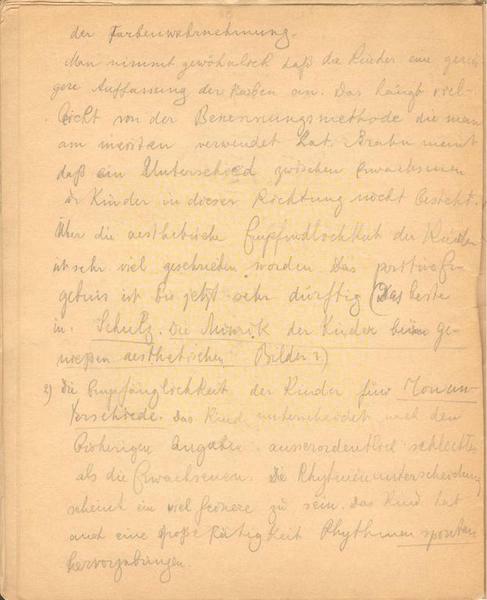 der Farbenwahrnehmung.
Man nimmt gewöhnlich daß die Kinder eine gerin
gere Auffassung der Farben an. Das hängt viel-
leicht von der Benennungsmethode die man
am meisten verwendet hat. meint
daß ein Unterschied zwischen Erwachsenen
Kinder in dieser Richtung nicht besteht.
Über die aesthetische Empfindlichkeit der Kinder
ist sehr viel geschrieben worden Das
ist bis jetzt sehr dürftig (Das beste
in: Schulz. Die Mimik der Kinder beim ge-
nießen aesthetischen Bilder?)
2) Die Empfänglichkeit der Kinder für Tonun
terschiede. Das Kind unterscheidet nach den
bisherigen Angaben ausserordentlich schlechter
als die Erwachsenen. Die Rhytmenunterscheidung
scheint ein viel feinere zu sein. Das Kind hat
auch eine große Fähigkeit Rhythmen spontan
hervorzubringen.